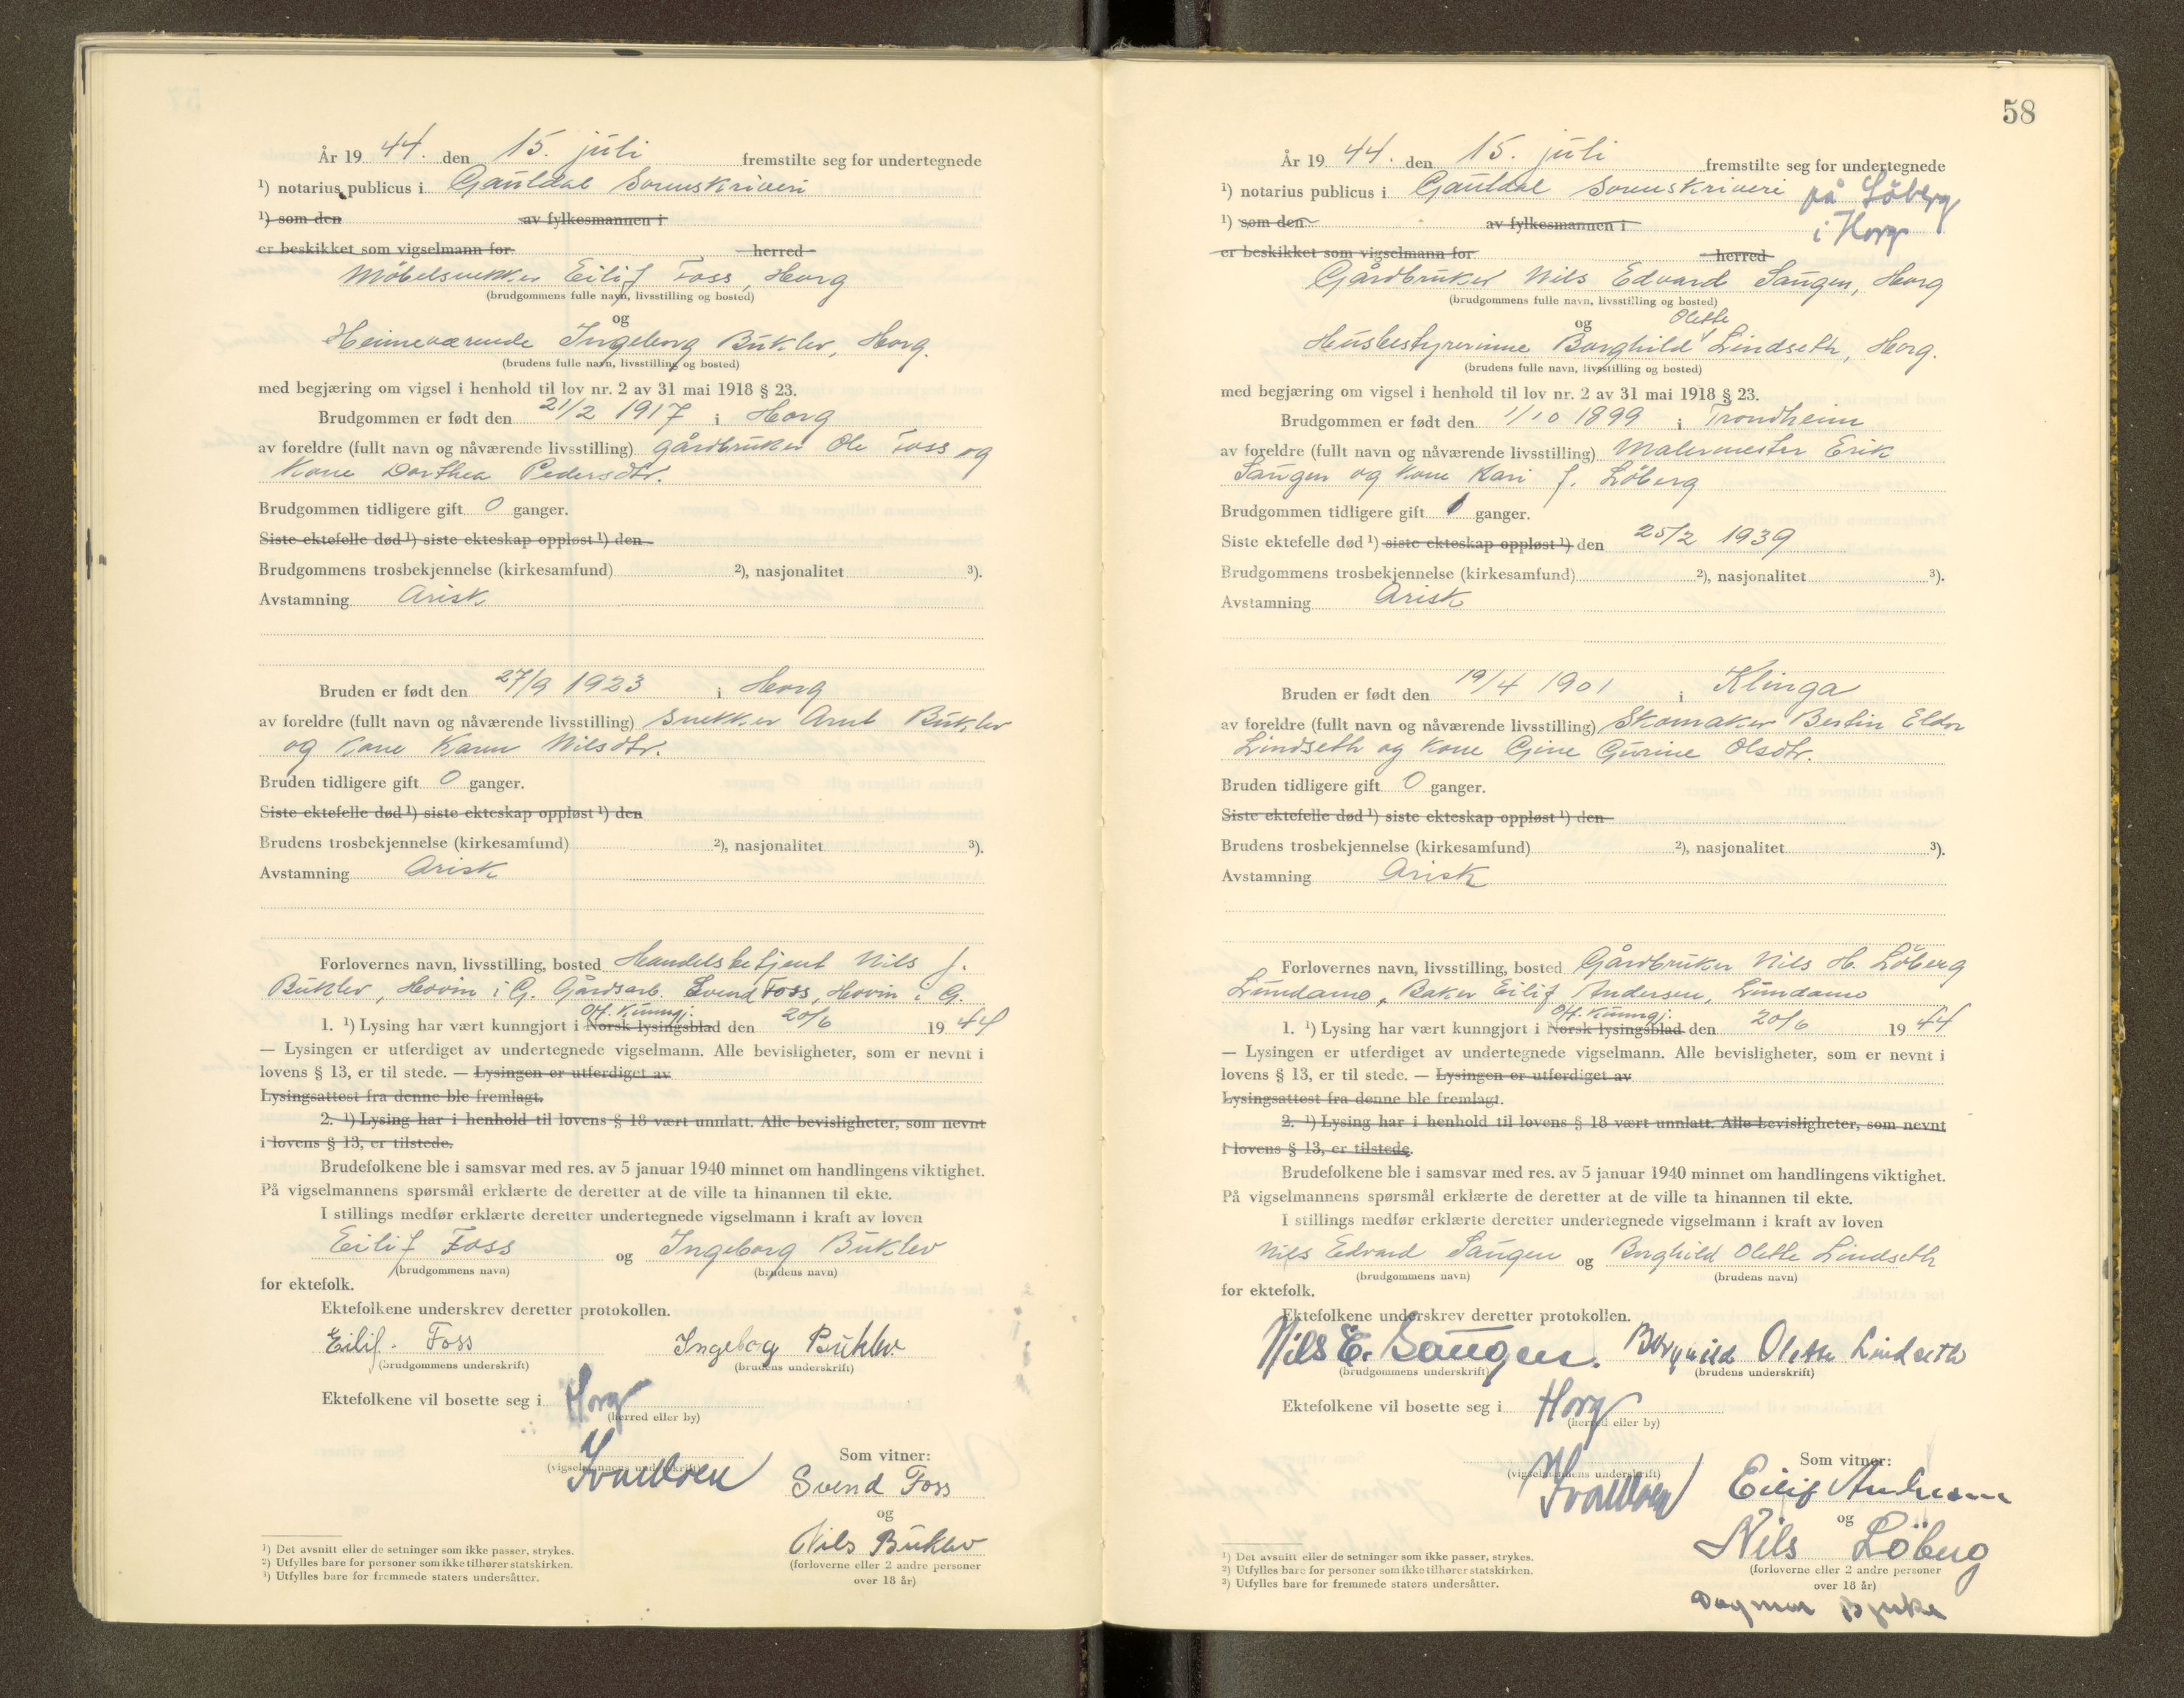 År 19 44. den 15. juli fremstilte seg for undertegnede
¹) notarius publicus i Gauldal Sorenskriveri
¹) som den av fylkesmannen i
er beskikket som vigselmann for herred
Møbelsnekker Eilif Foss, Horg
(brudgommens fulle navn, livsstilling og bosted)
og
Heimeværende Ingeborg Buklev, Horg.
(brudens fulle navn, livsstilling og bosted)
med begjæring om vigsel i henhold til lov nr. 2 av 31 mai 1918 § 23.
Brudgommen er født den 21/2 1917 i Horg
av foreldre (fullt navn og nåværende livsstilling) gårdbruker Ole Foss og
Kone Dorthea Pedersdtr.
Brudgommen tidligere gift 0 ganger.
Siste ektefelle død ¹) siste ekteskap oppløst ¹) den
Brudgommens trosbekjennelse (kirkesamfund) ²), nasjonalitet ³).
Avstamning Arisk
Bruden er født den 27/9 1923 i Horg
av foreldre (fullt navn og nåværende livsstilling) Snekker Arnt Buklev
og Kone Karen Nilsdtr.
Bruden tidligere gift 0 ganger.
Siste ektefelle død ¹) siste ekteskap oppløst ¹) den
Brudens trosbekjennelse (kirkesamfund) ²), nasjonalitet ³).
Avstamning Arisk
Forlovernes navn, livsstilling, bosted Handelsbetjent Nils J.
Buklev, Hovin i G. Gårdsarb. Svend Foss, Hovin i G.
Off. Kunngj.
1. ¹) Lysing har vært kunngjort i Norsk lysingsblad den 20/6 19 44
— Lysingen er utferdiget av undertegnede vigselmann. Alle bevisligheter, som er nevnt i
lovens § 13, er til stede. — Lysingen er utferdiget av
Lysingsattest fra denne ble fremlagt.
2. ¹) Lysing har i henhold til lovens § 18 vært unnlatt. Alle bevisligheter, som nevnt
i lovens § 13, er tilstede.
Brudefolkene ble i samsvar med res. av 5 januar 1940 minnet om handlingens viktighet.
På vigselmannens spørsmål erklærte de deretter at de ville ta hinannen til ekte.
I stillings medfør erklærte deretter undertegnede vigselmann i kraft av loven
Eilif Foss og Ingeborg Buklev
(brudgommens navn) (brudens navn)
for ektefolk.
Ektefolkene underskrev deretter protokollen.
Eilif. Foss Ingebog Buklev
(brudgommens underskrift) (brudens underskrift)
Ektefolkene vil bosette seg i Horg
(herred eller by)
Som vitner:
(vigselmannens underskrift)
Svend Foss
og
Nils Buklev
(forloverne eller 2 andre personer
over 18 år)
¹) Det avsnitt eller de setninger som ikke passer, strykes.
²) Utfylles bare for personer som ikke tilhører statskirken.
³) Utfylles bare for fremmede staters undersåtter.
58
År 19 44. den 15. juli fremstilte seg for undertegnede
¹) notarius publicus i Gauldal Sorenskriveri på Løberg
i Horg
¹) som den av fylkesmannen i
er beskikket som vigselmann for herred
Gårdbruker Nils Edvard Saugen, Horg
(brudgommens fulle navn, livsstilling og bosted)
og Olette
Husbestyrerinne Borghild Lindseth, Horg.
(brudens fulle navn, livsstilling og bosted)
med begjæring om vigsel i henhold til lov nr. 2 av 31 mai 1918 § 23.
Brudgommen er født den 1/10 1899 i Trondheim
av foreldre (fullt navn og nåværende livsstilling) Malermester Erik
Saugen og Kone Kari f. Løberg
Brudgommen tidligere gift 1 ganger.
Siste ektefelle død ¹) siste ekteskap oppløst ¹) den 25/2 1939
Brudgommens trosbekjennelse (kirkesamfund) ²), nasjonalitet ³).
Avstamning Arisk
Bruden er født den 19/4 1901 i Klinga
av foreldre (fullt navn og nåværende livsstilling) Skomaker Bertin Eldor
Lindseth og Kone Gine Gurine Olsdtr.
Bruden tidligere gift 0 ganger.
Siste ektefelle død ¹) siste ekteskap oppløst ¹) den
Brudens trosbekjennelse (kirkesamfund) ²), nasjonalitet ³).
Avstamning Arisk
Forlovernes navn, livsstilling, bosted Gårdbruker Nils H. Løberg
Lundamo, Baker Eilif Andersen, Lundamo
Off. Kunngj.
1. ¹) Lysing har vært kunngjort i Norsk lysingsblad den 20/6 19 44
— Lysingen er utferdiget av undertegnede vigselmann. Alle bevisligheter, som er nevnt i
lovens § 13, er til stede. — Lysingen er utferdiget av
Lysingsattest fra denne ble fremlagt.
2. ¹) Lysing har i henhold til lovens § 18 vært unnlatt. Alle bevisligheter, som nevnt
i lovens § 13, er tilstede.
Brudefolkene ble i samsvar med res. av 5 januar 1940 minnet om handlingens viktighet.
På vigselmannens spørsmål erklærte de deretter at de ville ta hinannen til ekte.
I stillings medfør erklærte deretter undertegnede vigselmann i kraft av loven
Nils Edvard Saugen og Borghild Olette Lindseth
(brudgommens navn) (brudens navn)
for ektefolk.
Ektefolkene underskrev deretter protokollen.
Nils E. Saugen. Borghild Olette Lindseth
(brudgommens underskrift) (brudens underskrift)
Ektefolkene vil bosette seg i Horg
(herred eller by)
Som vitner:
(vigselmannens underskrift)
Eilif Andersen
og
Nils Löberg
(forloverne eller 2 andre personer
over 18 år)
Dagmar
¹) Det avsnitt eller de setninger som ikke passer, strykes.
²) Utfylles bare for personer som ikke tilhører statskirken.
³) Utfylles bare for fremmede staters undersåtter.